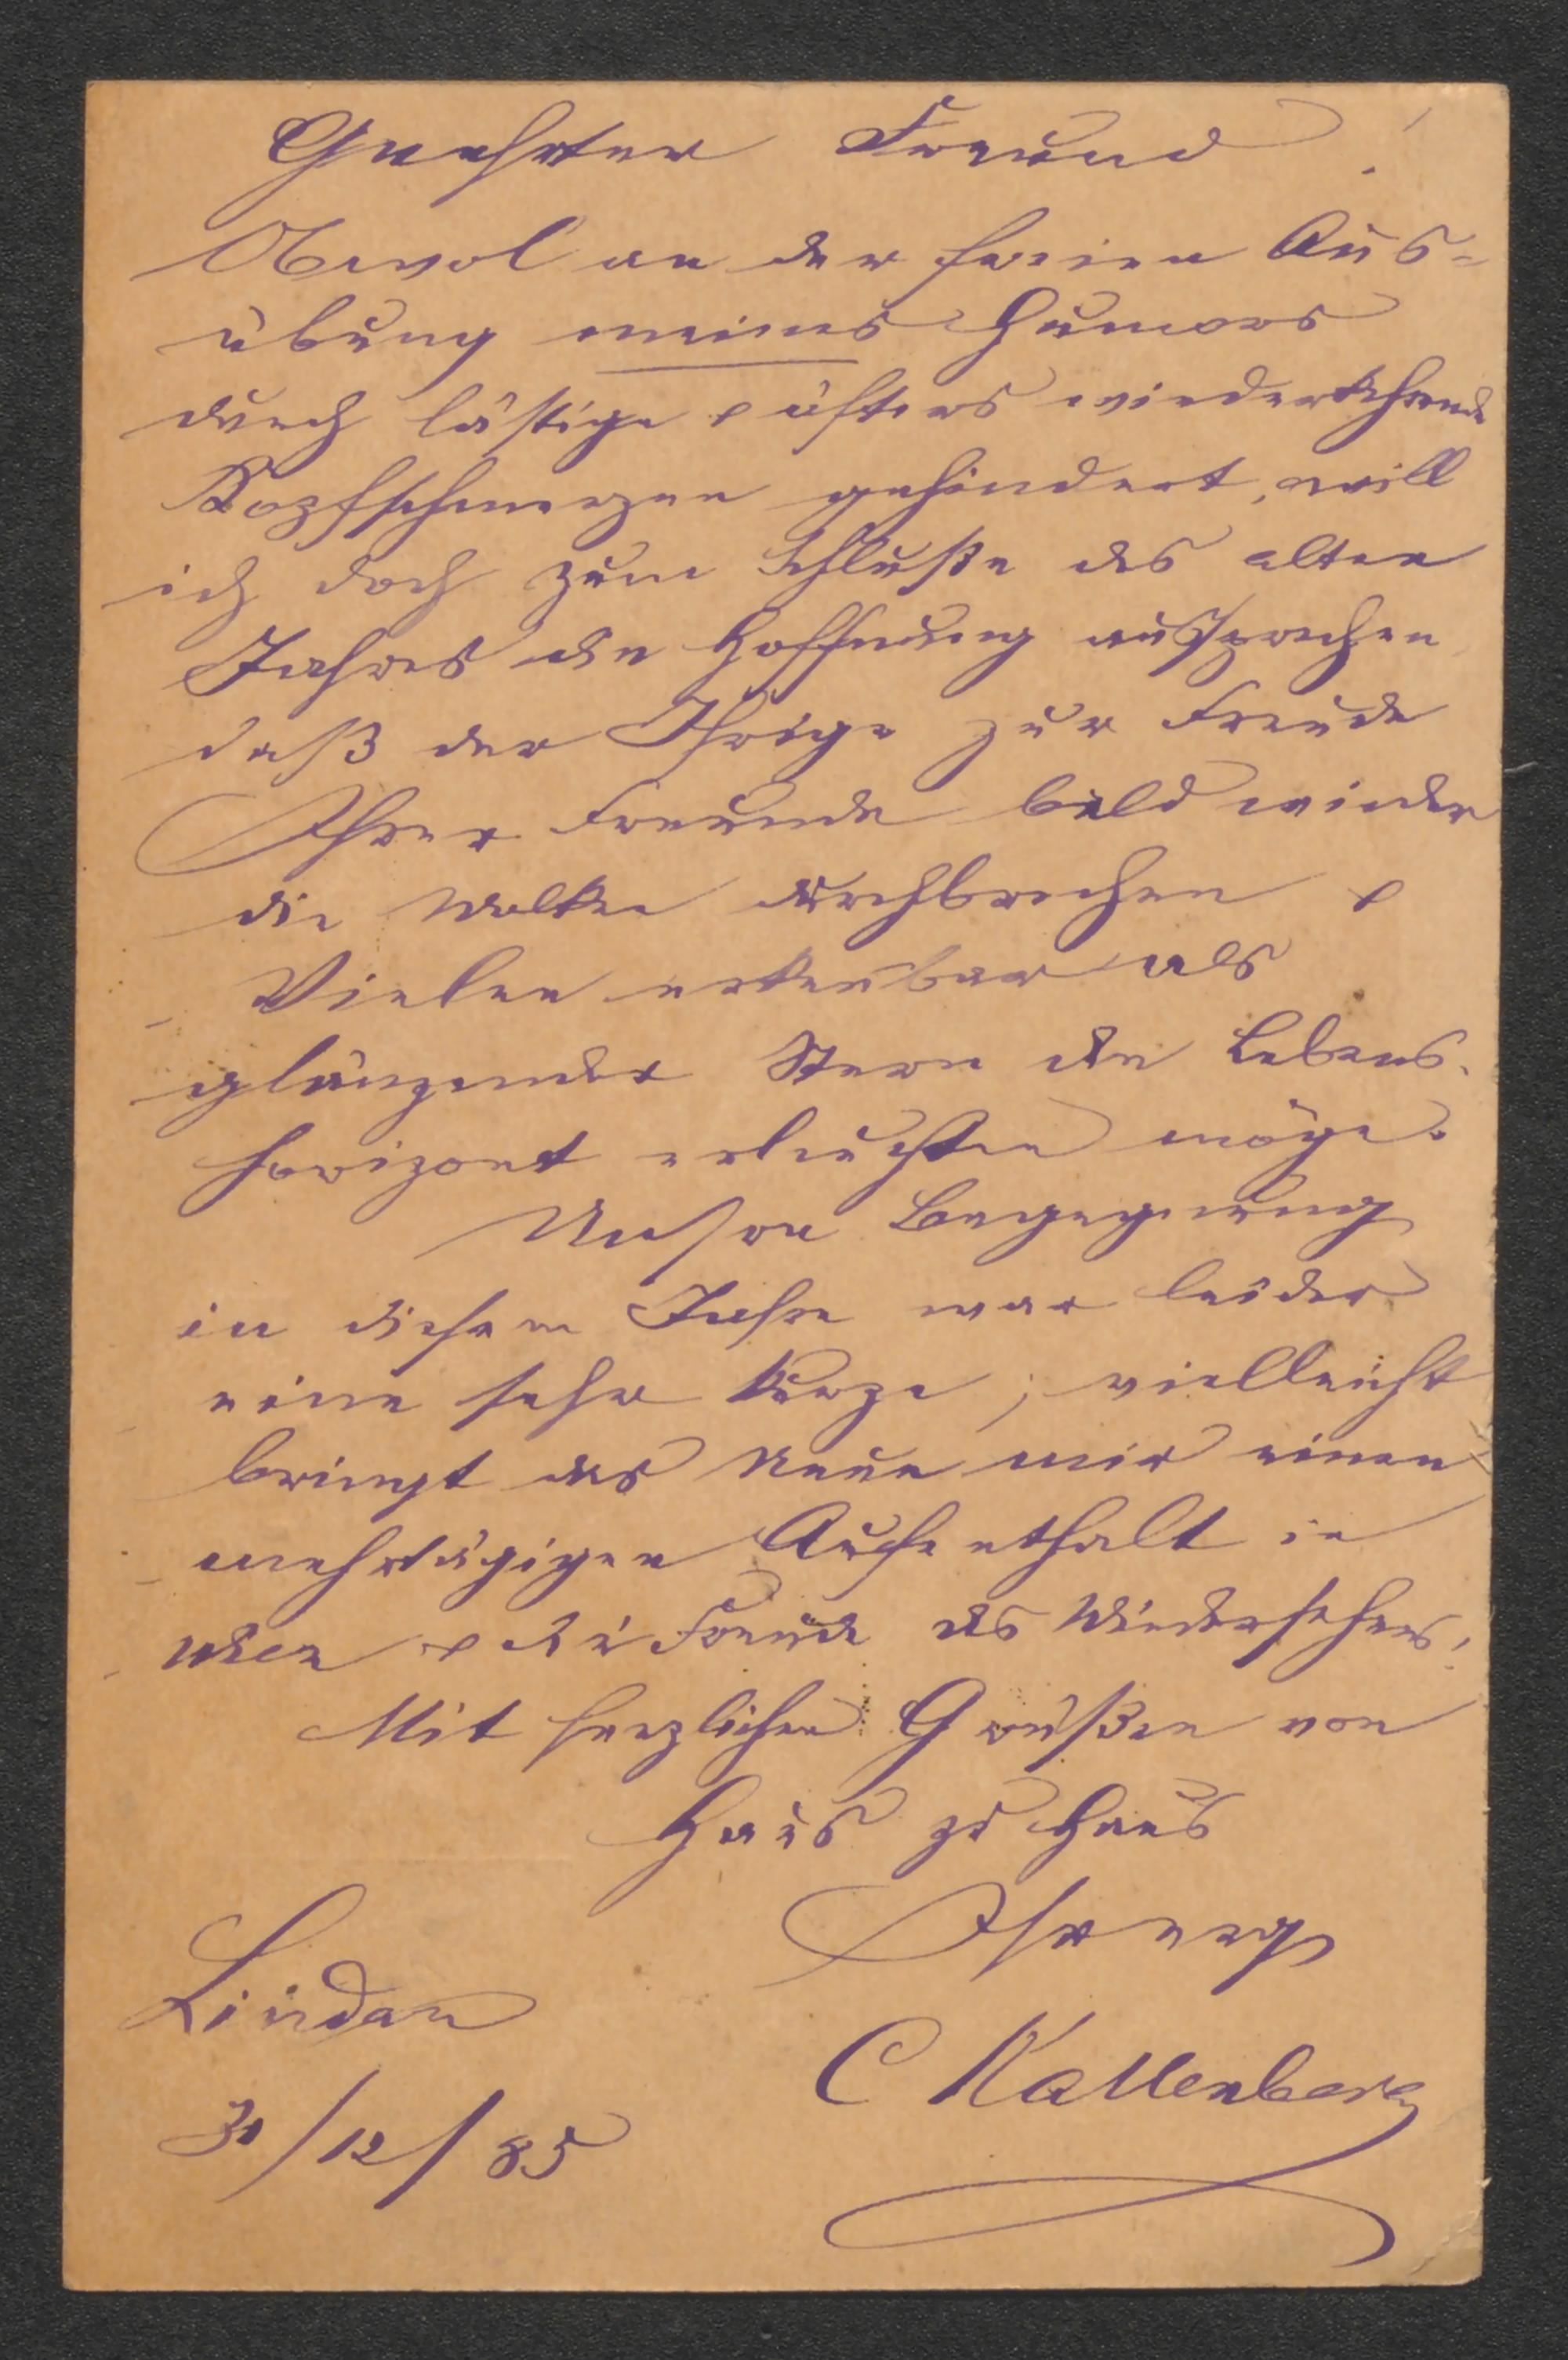 Geehrter Freund!
Obwol an der freien Aus-
übung meines Humors
durch lästige & öfters wiederkehrende
Kopfschmerzen gehindert, will
ich doch zum Schluße des alten
Jahres die Hoffnung aussprechen
daß der Ihrige zur Freude
Ihrer Freunde bald wieder
die Wolken durchbrechen &
Vielen erkenbar als
glänzender Stern den Lebens-
horizont erleuchten möge.
Unsere Begegnung
in diesem Jahre war leider
eine sehr kurze; vielleicht
bringt das Neue mir einen
mehrtägigen Aufenthalt in
Wien & die Freude des Wiedersehens.
Mit herzlichen Grüßen von
Haus zu Haus
Ihr erg
Lindau
C Kallenberg
31/12/85